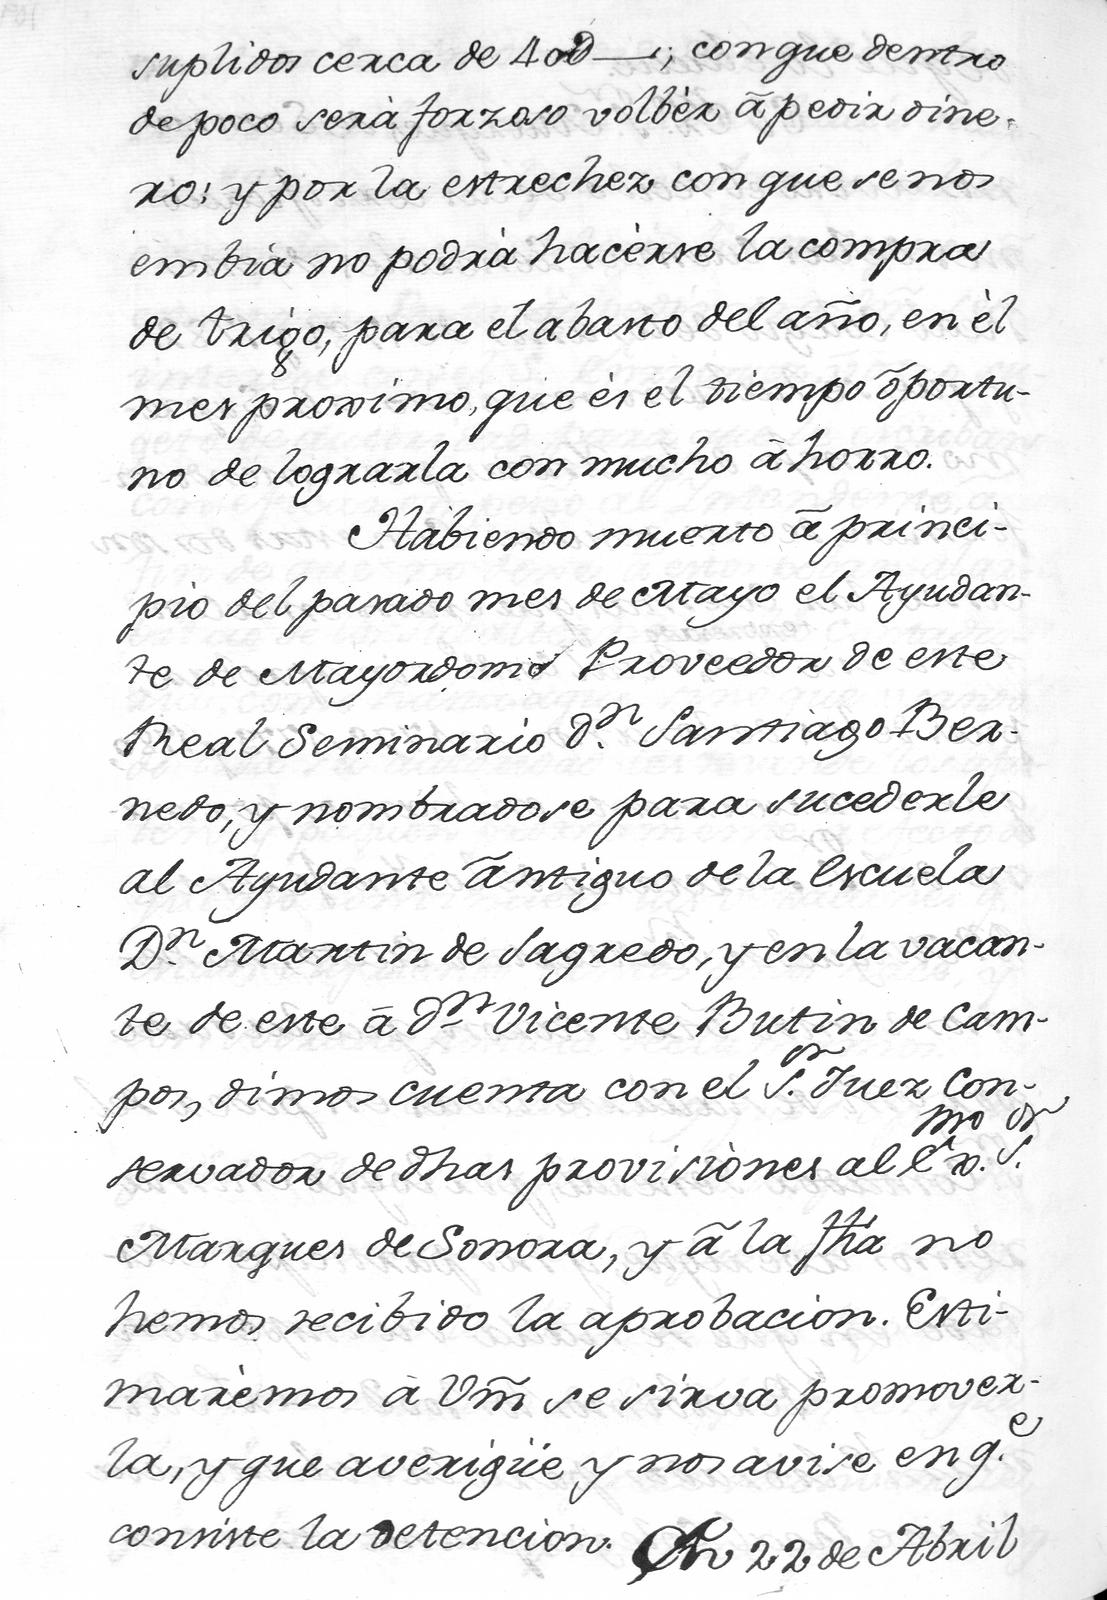 suplidos cerca de 40D——; con que dentro
de poco serà forzoso volbèr ã pedir dine-
ro: y por la estrechez con que se nos
embia no podrà hacèrse la compra
de trigo, para el abasto del año, en èl
mes proximo, que ès el tièmpo õportu-
no de lograrla con mucho ãhorro.
Habiendo muerto ã princi-
pio del pasado mes de Mayo el Ayudan-
te de Mayordomo Proveedor de este
Real Seminario d.n Santiago Ber-
nedo, y nombradose para sucederle
al Ayudante ãntiguo de la Escuela
D.n Martin de Sagredo, y en la vacan-
te de este ã d.n Vicente Butin de Cam-
pos, dimos cuenta con el S.or Juez Con-
servador de dhas provisiònes al Exmo. S.or
Marques de Sonora, y ã la fha no
hemos recibido la aprobacion. Esti-
marèmos à Vm̃ se sirva promover-
la, y que averigüe y nos avise en q.e
consiste la detencion. En 22 de Abril